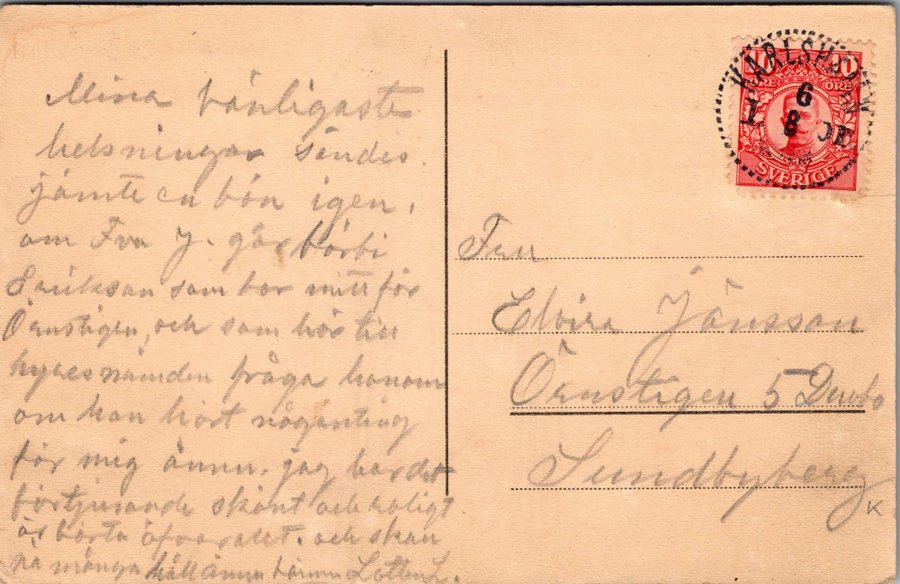 Mina vänligaste
helsningar sändes
jämte en bön igen,
om Fru J. går förbi
Erikson som bor mitt för
Örnstigen, och som hör till
hyresnämden fråga honom
om han hört någonting
för mig ännu. jag har det
förtjusande skönt och roligt
är borta öfverallt. och skall
på många håll ännu Lotten L.
10 10
ÖRE ÖRE
SVERIGE
KARLSHAMN
6
8
Fru
Elvira Jansson
Örnstigen 5 Duvbo
Sundbyberg
K